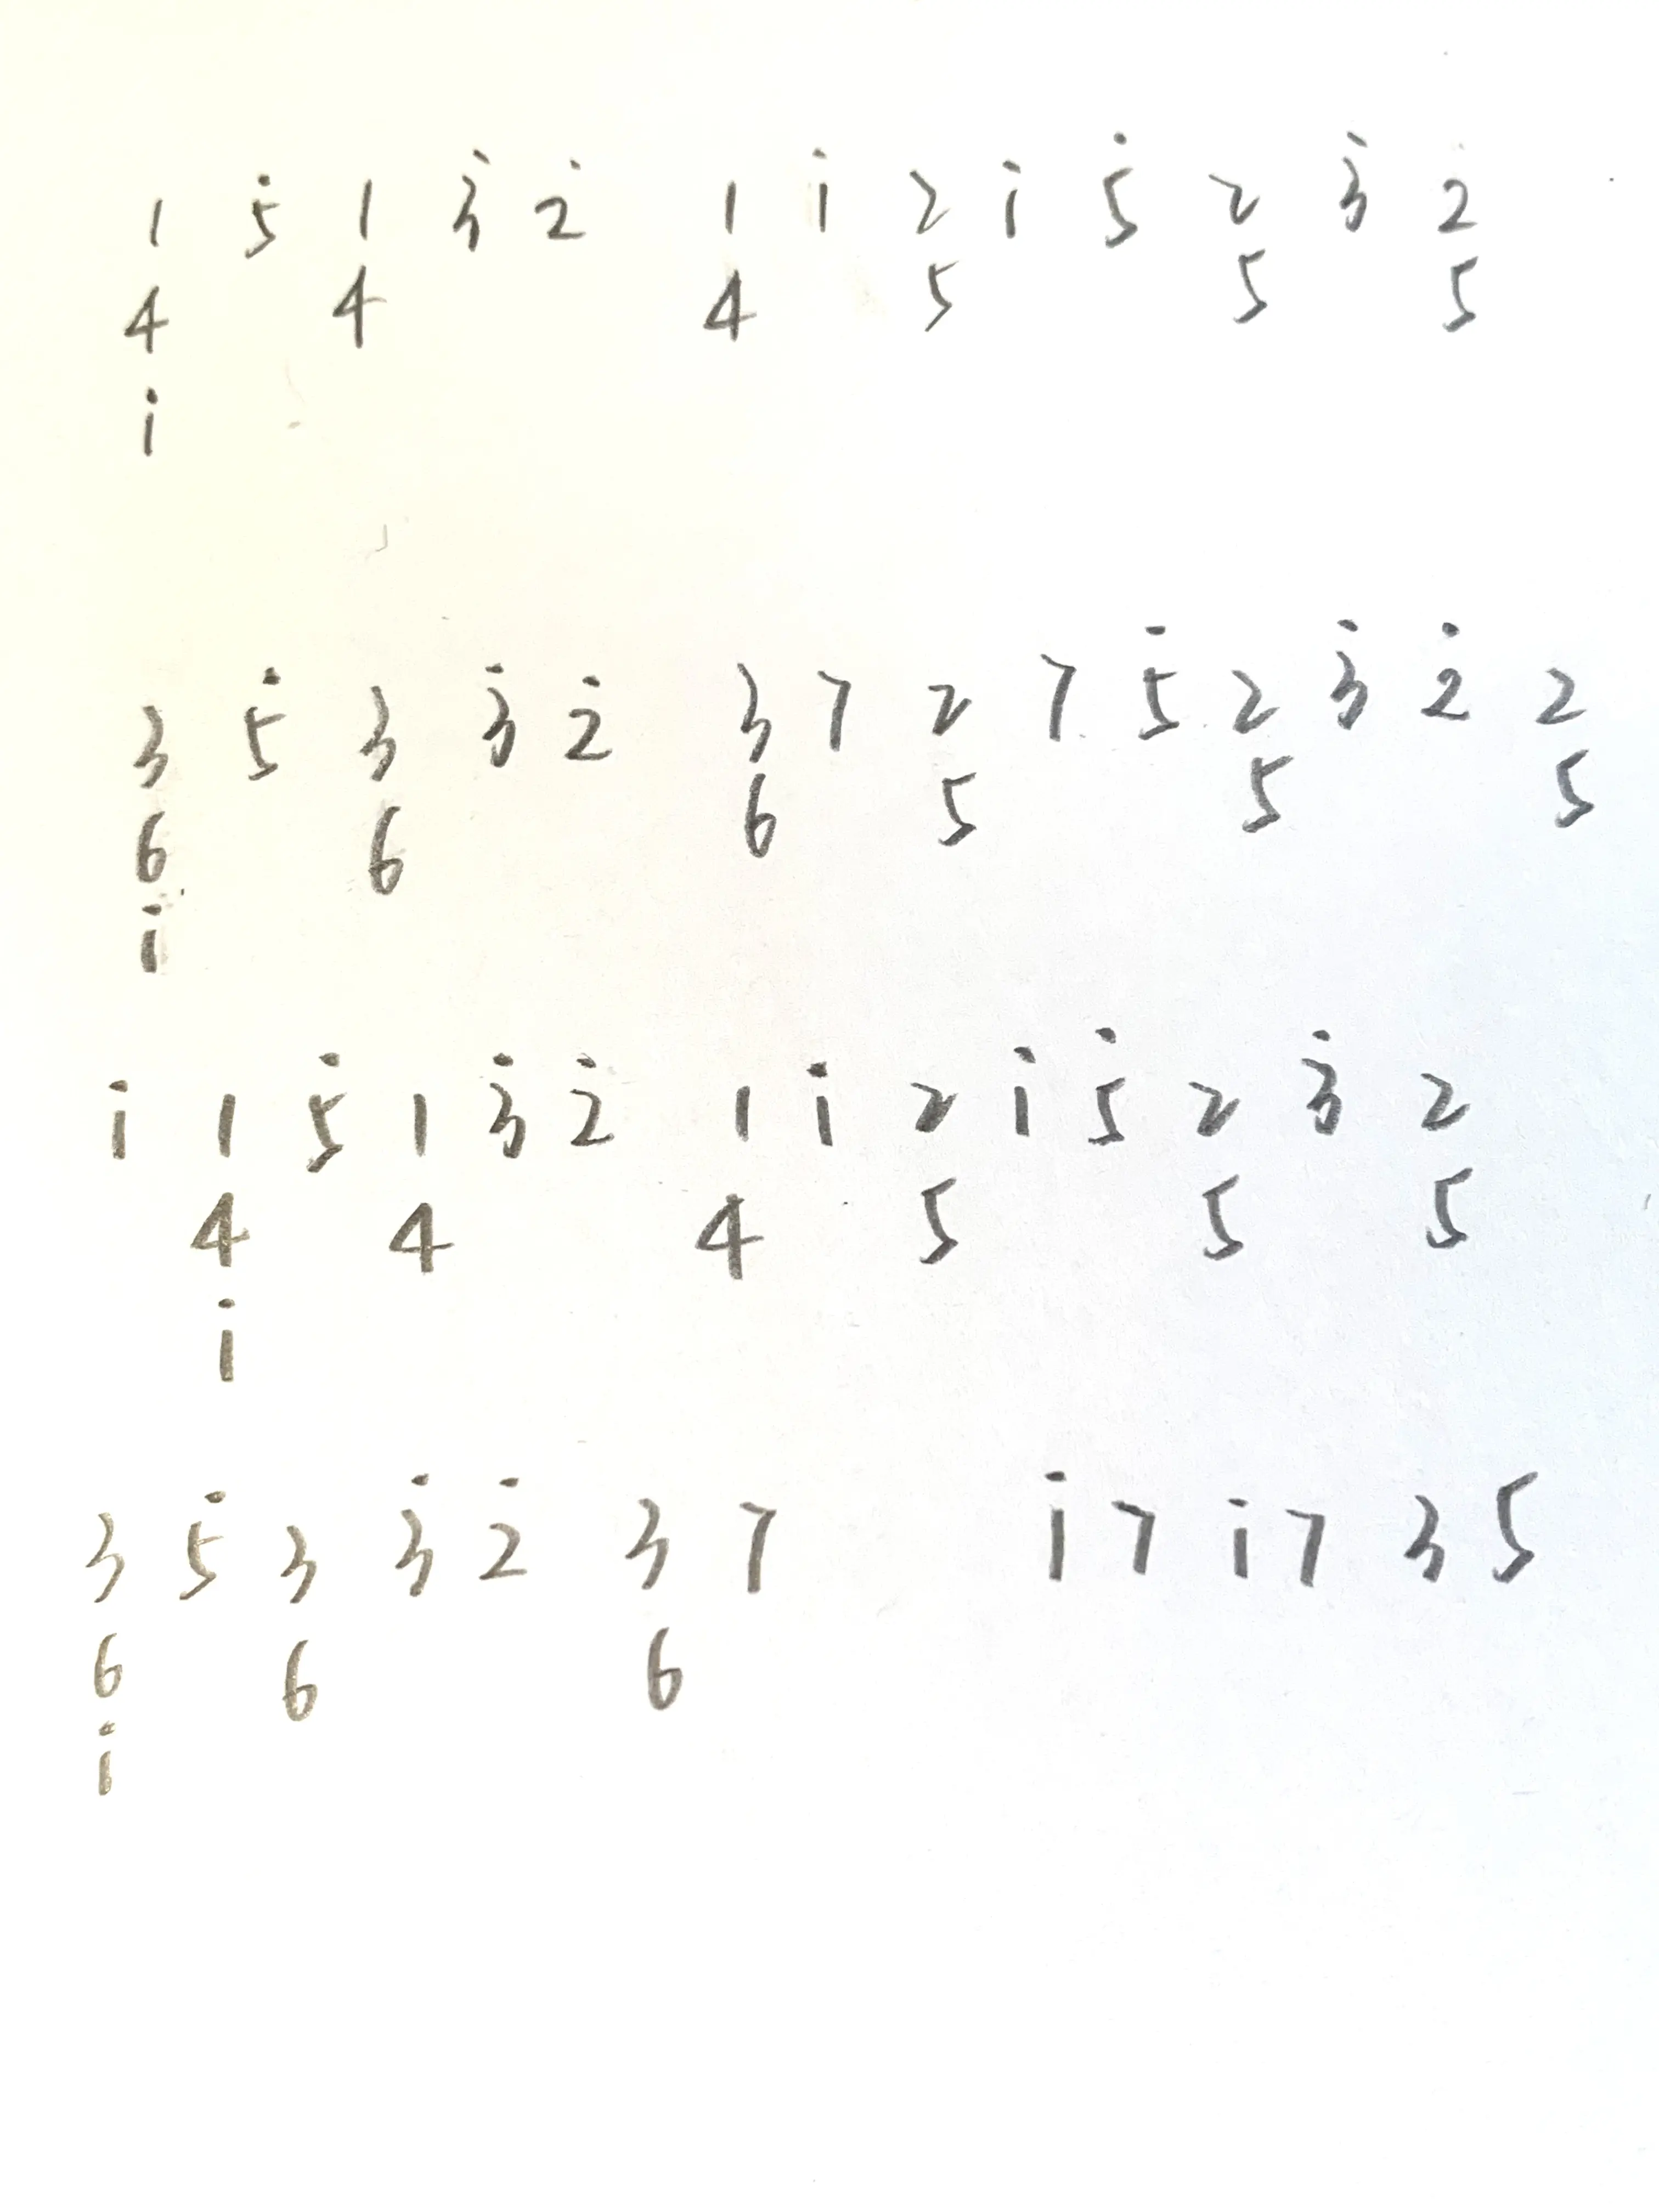 1 5̇ 1 3̇ 2̇ 1 i 2 i 5̇ 2 3̇ 2̇
4 4 4 5 5 5
i
3 5̇ 3 3̇ 2̇ 3 7 2 7 5̇ 2 3̇ 2̇ 2
6 6 6 5 5 5
i
i 1 5̇ 1 3̇ 2̇ 1 i 2 i 5̇ 2 3̇ 2
4 4 4 5 5 5
i
3 5̇ 3 3̇ 2̇ 3 7 i 7 i 7 3 5
6 6 6
i